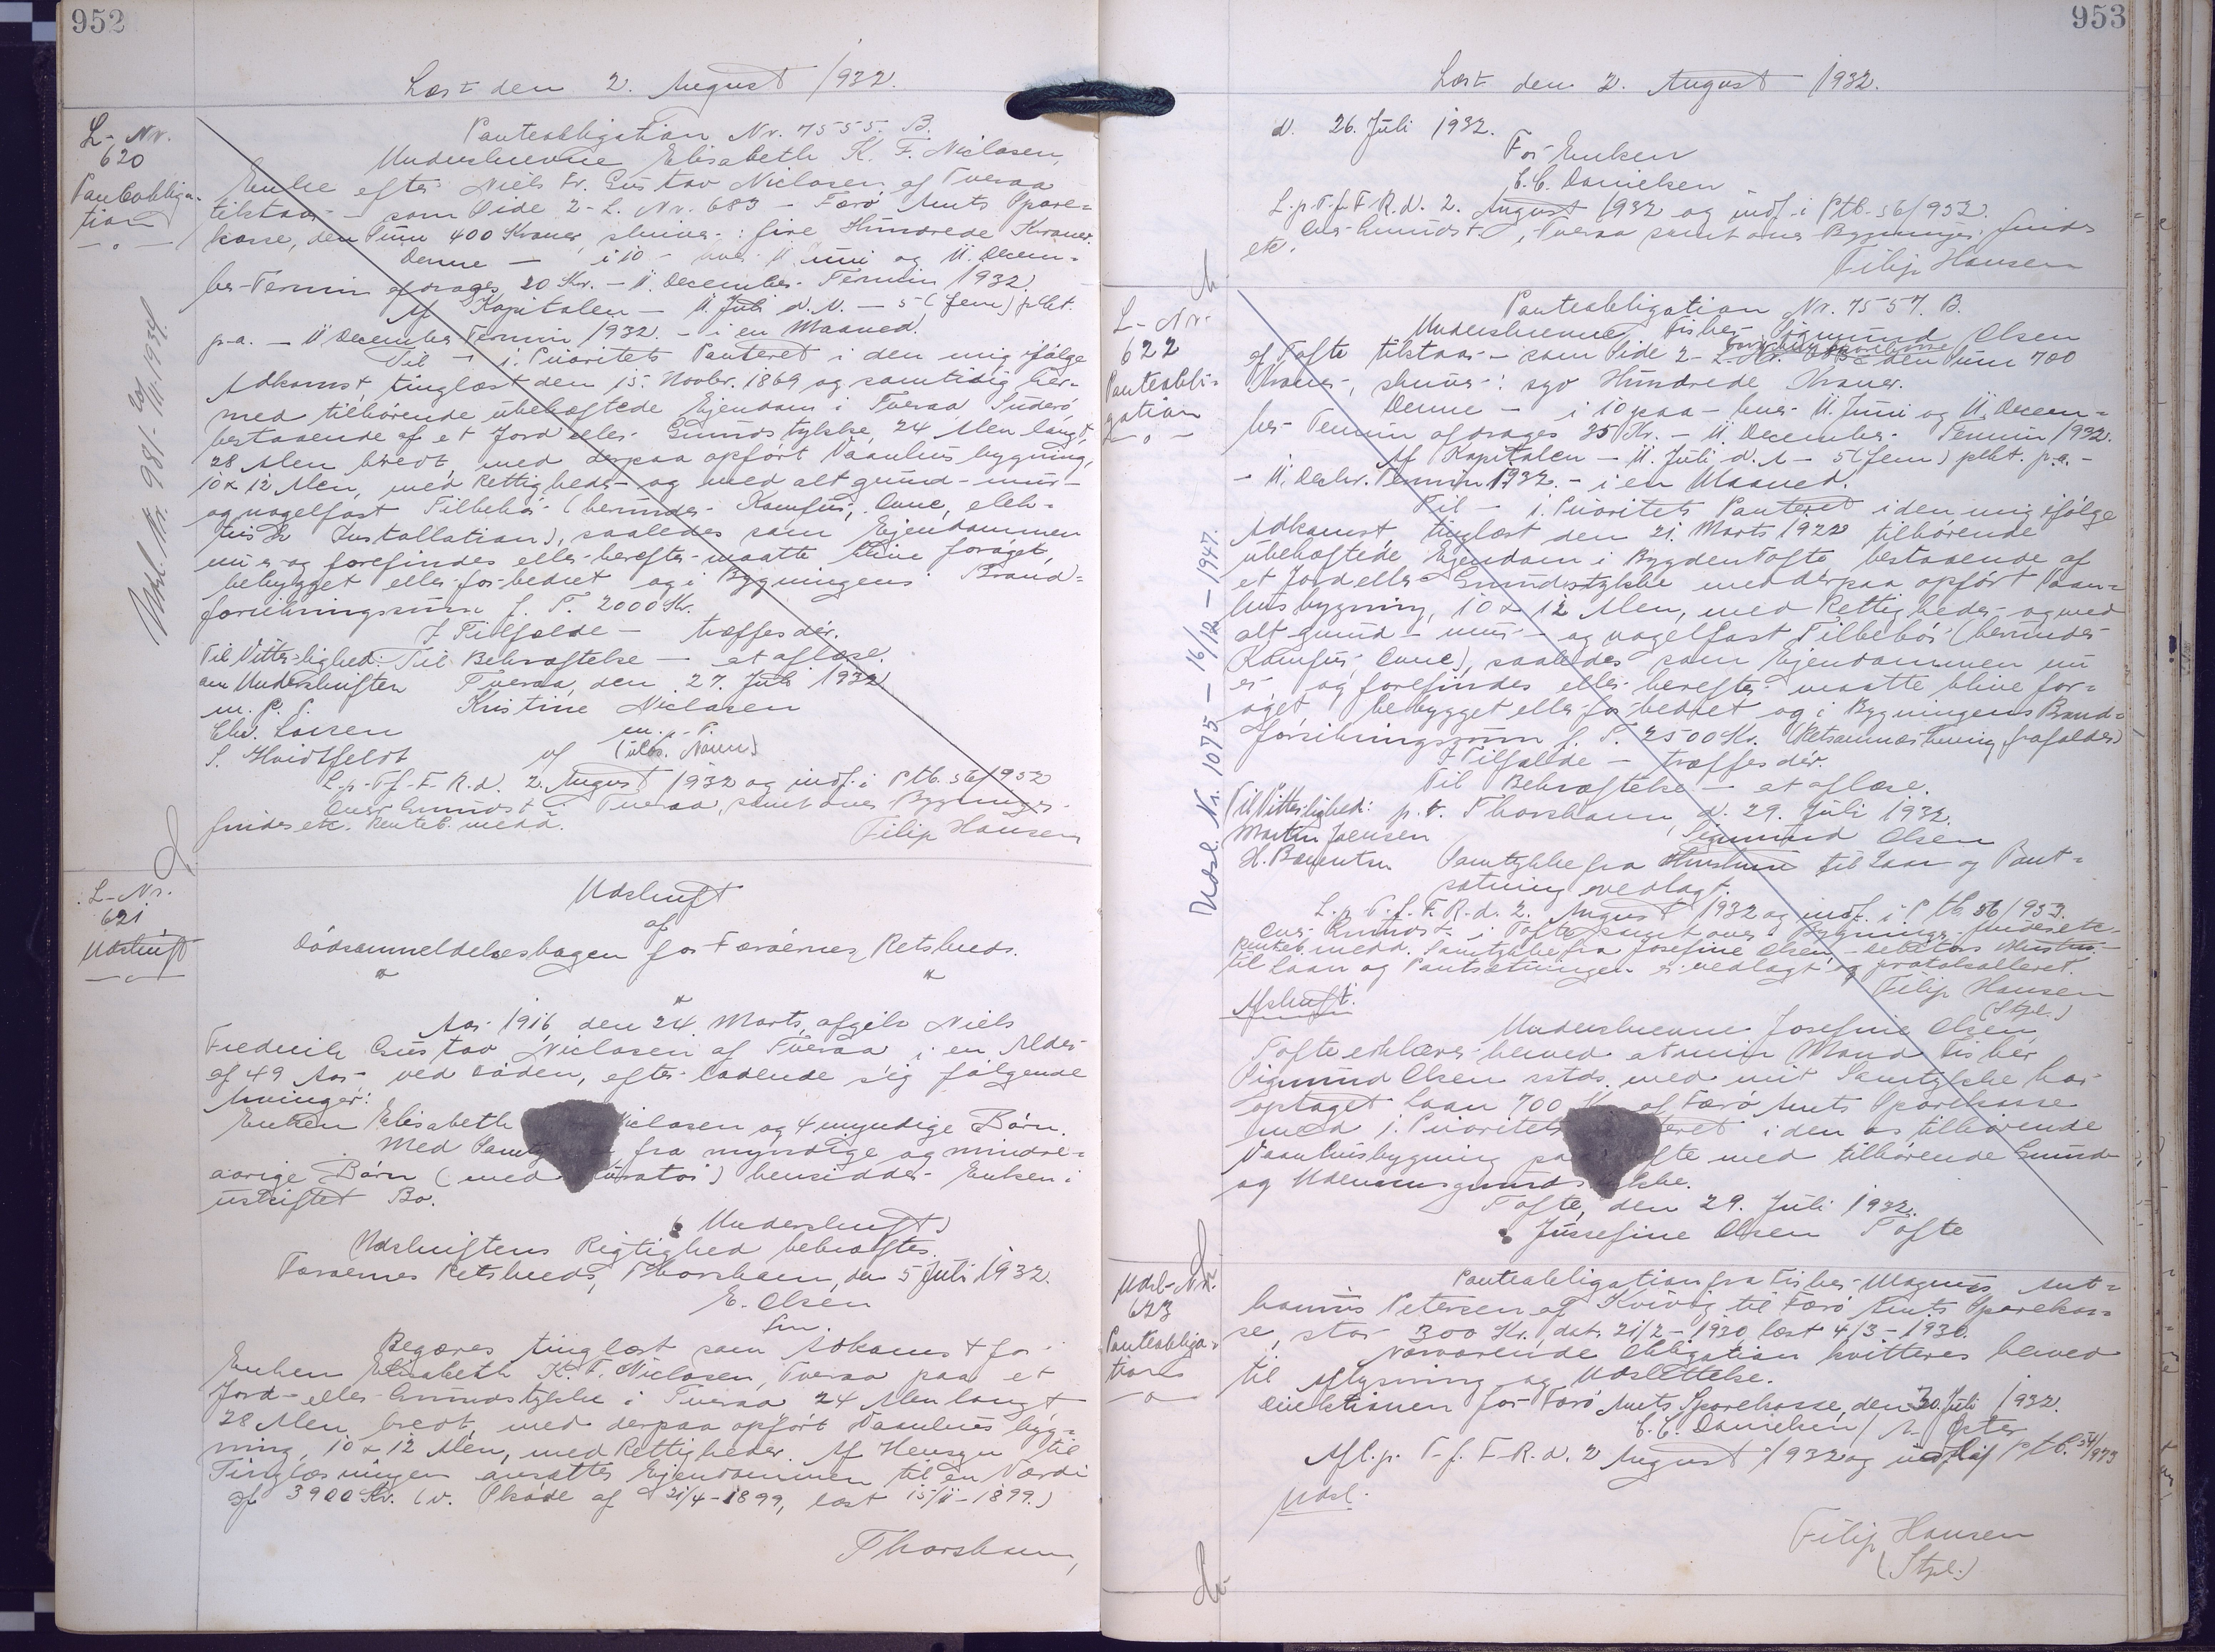 952
Læst den 2. August 1932.
L-Nr.
620
Panteobliga-
tion
Udsl. Nr. 981 - 20/11-1934.
Panteobligation Nr. 7555. B.
Underskrevne Elisabeth K. F. Niclasen,
Enke efter Niels Fr. Gustav Niclasen af Tveraa
tilstaar - som Side 2 - L. Nr. 683 - Færø Amts Spare-
kasse, den Sum 400 Kroner, skriver: fire Hundrede Kroner.
Denne - i 10 - hver 11 Juni og 11. Decem-
ber Termin afdrages 20 Kr. - 11. December Termin 1932.
Af Kapitalen - 11. Juli d. A. - 5 (fem) pCt.
p.a. - 11 December Termin 1932. - i en Maaned.
Til - 1. Prioritets Panteret i den mig ifølge
Adkomst, tinglæst den 15. Novbr. 1869 og samtidig her-
med tilhørende ubehæftede Ejendom i Tveraa, Suderø,
bestaaende af et Jord eller Grundstykke, 24 Alen langt,
28 Alen bredt, med derpaa opført Vaanhusbygning,
10 x 12 Alen, med Rettigheder og med alt grund- mur-
og nagelfast Tilbehør (herunder Komfur, Ovne, elek-
trisk Installation), saaledes som Ejendommen
nu er og forefindes eller herefter maatte blive forøget,
bebygget eller forbedret og i Bygningens Brand-
forsikringssum f. T. 2000 Kr.
I Tilfælde - træffes dér.
Til Vitterlighed: Til Bekræftelse - et aflæse.
om Underskriften Tveraa, den 27. Juli 1932
m. p. P. Kristine Niclasen
Chr. Larsen m. p. P.
S. Hvidtfeldt af (udsl. Navn)
L. p. T. f. F. R. d. 2. August 1932 og indf. i Ptb. 56/952
Over Grundst. i Tveraa, samt over Bygninger
findes etc. Renteb. medd.
Filip Hansen
L-Nr.
621
Udskrift
Udskrift
af
Dødsanmeldelsesbogen for Færøernes Retskreds.
Aar 1916, den 24. Marts, afgik Niels
Frederik Gustav Niclasen af Tveraa i en Alder
af 49 Aar ved Døden, efterladende sig følgende
Arvinger:
Enken Elisabeth Niclasen og 4 myndige Børn.
Med Samty fra myndige og mindre-
aarige Børn (med Kurator) hensidder Enken i
uskiftet Bo.
(Underskrift)
Udskriftens Rigtighed bekræftes.
Færøernes Retskreds, Thorshavn, den 5 Juli 1932.
E. Olsen
fm.
Begæres tinglæst som Adkomst for
Enken Elisabeth K. F. Niclasen, Tveraa paa et
Jord- eller Grundstykke i Tveraa 24 Alen langt
28 Alen bredt, med derpaa opført Vaanhusbyg-
ning, 10 x 12 Alen, med Rettigheder. Af Hensyn til
Tinglæsningen ansættes Ejendommen til en Værdi
af 3900 Kr. (v. Skøde af 21/4-1899, læst 15/11-1899.)
Thorshavn,
953
Læst den 2. August 1932.
d. 26. Juli 1932.
For Enken
C. C. Danielsen
L. p. T. f. F. R. d. 2. August 1932 og indf. i Ptb. 56/952.
Over Grundst. i Tveraa samt over Bygninger findes
etc.
Filip Hansen
L-Nr.
622
Panteobli-
gation
Udsl. Nr. 1075 - 16/12 - 1947.
Panteobligation Nr. 7557. B.
Underskrevne Fisker Sigmund Olsen
af Tofte tilstaar - som Side 2 - L. Nr. den Sum 700
Kroner, skriver: syv Hundrede Kroner.
Denne - i 10 paa - hver 11. Juni og 11. Decem-
ber Termin afdrages 35 Kr. - 11. December Termin 1932.
Af Kapitalen - 11. Juli d. A - 5 (fem) pCt. p.a. -
- 11. Decbr. Termin 1932. - i en Maaned.
Til - 1. Prioritets Panteret i den mig ifølge
Adkomst, tinglæst den 21. Marts 1922 tilhørende
ubehæftede Ejendom i Bygden Tofte bestaaende af
et Jord eller Grundstykke med derpaa opført Vaan-
husbygning, 10 x 12 Alen, med Rettigheder og med
alt grund- mur- og nagelfast Tilbehør (herunder
Komfur, Ovne), saaledes som Ejendommen nu
er og forefindes eller herefter maatte blive for-
øget, bebygget eller forbedret og i Bygningens Brand-
forsikringssum f. T. 2500 Kr. (Retsanmærkning frafaldes)
I Tilfælde - træffes dér.
Til Bekræftelse - et aflæse.
Til Vitterlighed: p. t. Thorshavn, d. 29. Juli 1932.
Martin Joensen Sigmund Olsen
H. Barentsen Samtykke fra Hustruen til Laan og Pant-
sætning vedlagt.
L. p. T. f. F. R. d. 2. August 1932 og indf. i Ptb. 56/953.
Over Grundst. i Tofte samt over Bygninger findes etc.
Renteb. medd. Samtykke fra Josefine Olsen - Debitors Hustru -
til Laan og Pantsætningen er vedlagt og protokolleret.
Filip Hansen
(Stpl.)
Afskrift.
Underskrevne Josefine Olsen,
Tofte erklærer herved at min Mand Fisker
Sigmund Olsen sstds. med mit Samtykke har
optaget Laan 700 Kr. af Færø Amts Sparekasse
mod 1. Prioritets teret i den os tilhørende
Vaanhusbygning paa Tofte med tilhørende Grund
og Udenomsgrundstykke.
Tofte, den 29. Juli 1932.
Jussefine Olsen Tofte
Udsl-Nr.
623
Panteobliga-
tion
Panteobligation fra Fisker Magnus Ant-
honius Petersen af Kvivig til Færø Amts Sparekas-
se, stor 300 Kr. dat. 21/2-1930, læst 4/3-1930.
Nærværende Obligation kvitteres herved
til Aflysning og Udslettelse.
Direktionen for Færø Amts Sparekasse, den 30. Juli 1932.
C. C. Danielsen / Øster
Afl. p. T. f. F. R. d. 2 August 1932 og udslaf Ptb. 54/973
Udsl.
Filip Hansen
(Stpl.)